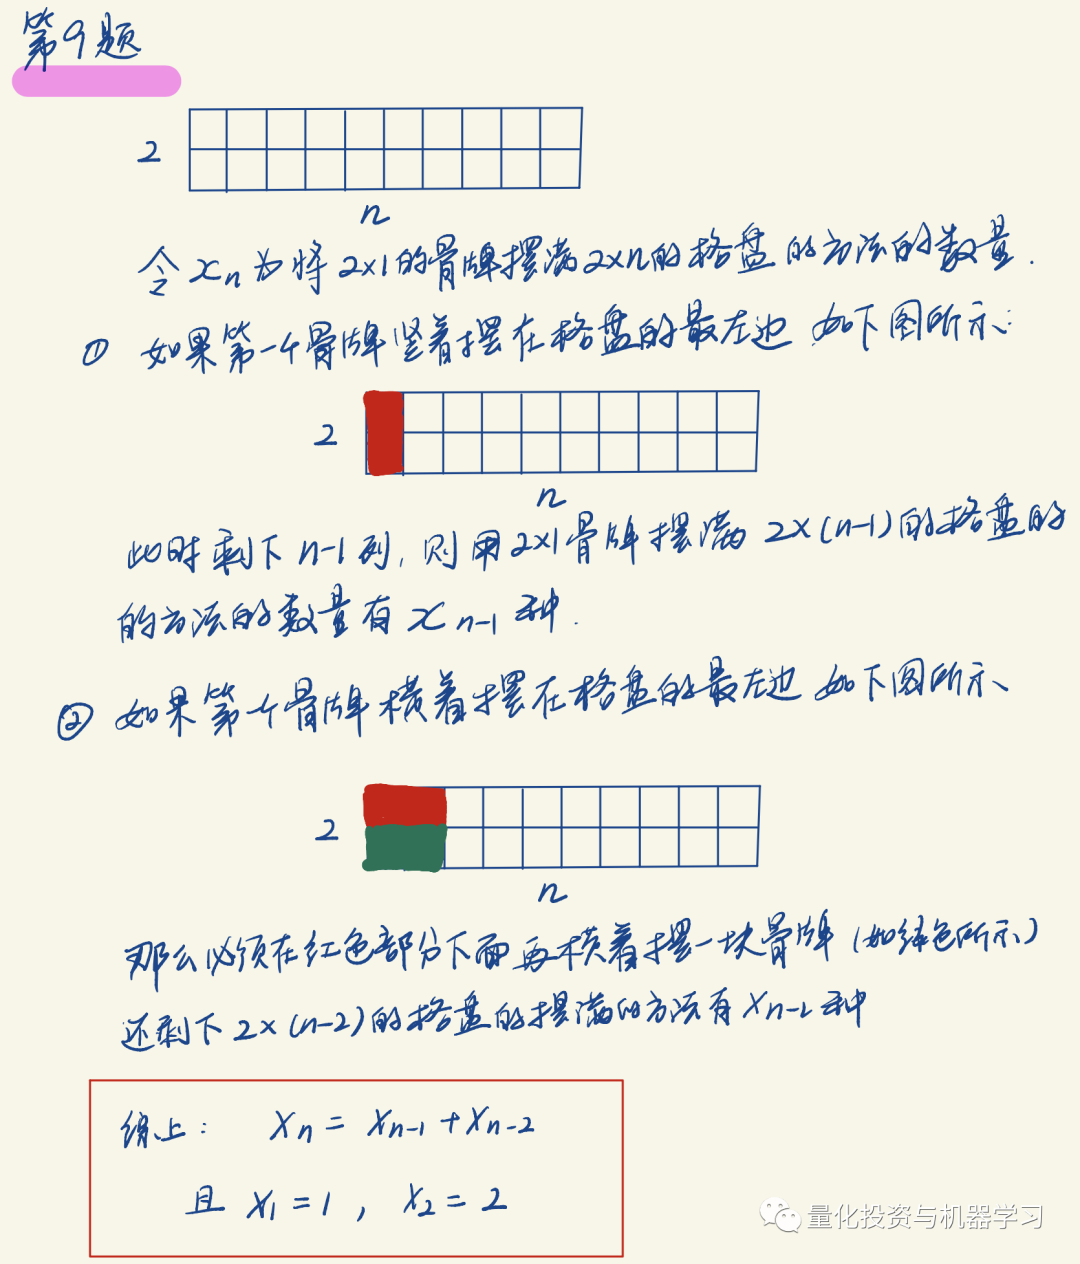 第9题
2
n
令 xn 为将 2×1的骨牌摆满2×n的格盘的方法的数量.
① 如果第一个骨牌竖着摆在格盘的最左边,如下图所示:
2
n
此时剩下 n-1 列, 则用2×1骨牌摆满 2×(n-1)的格盘的
的方法的数量有 xn-1 种.
② 如果第一个骨牌横着摆在格盘的最左边 如下图所示
2
n
那么必须在红色部分下面再横着摆一块骨牌 (如绿色所示)
还剩下 2×(n-2)的格盘的摆满的方法有 xn-2 种
综上: xn = xn-1 + xn-2
且 x1 = 1 , x2 = 2
量化投资与机器学习